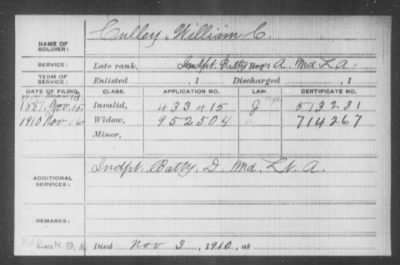 NAME OF SOLDIER: Culley, William C.
SERVICE: Late rank, Indpt. Batty A. Md. L. A.
TERM OF SERVICE: Enlisted , 1 Discharged , 1
DATE OF FILING. CLASS. APPLICATION NO. LAW. CERTIFICATE NO.
1881, Nov. 15 Invalid, 433415 J 513231
1910 Nov 16 Widow, 952504 714267
Minor,
ADDITIONAL SERVICES: Indpt. Batty, D. Md. Lt. A.
REMARKS:
Died Nov 3, 1910, at